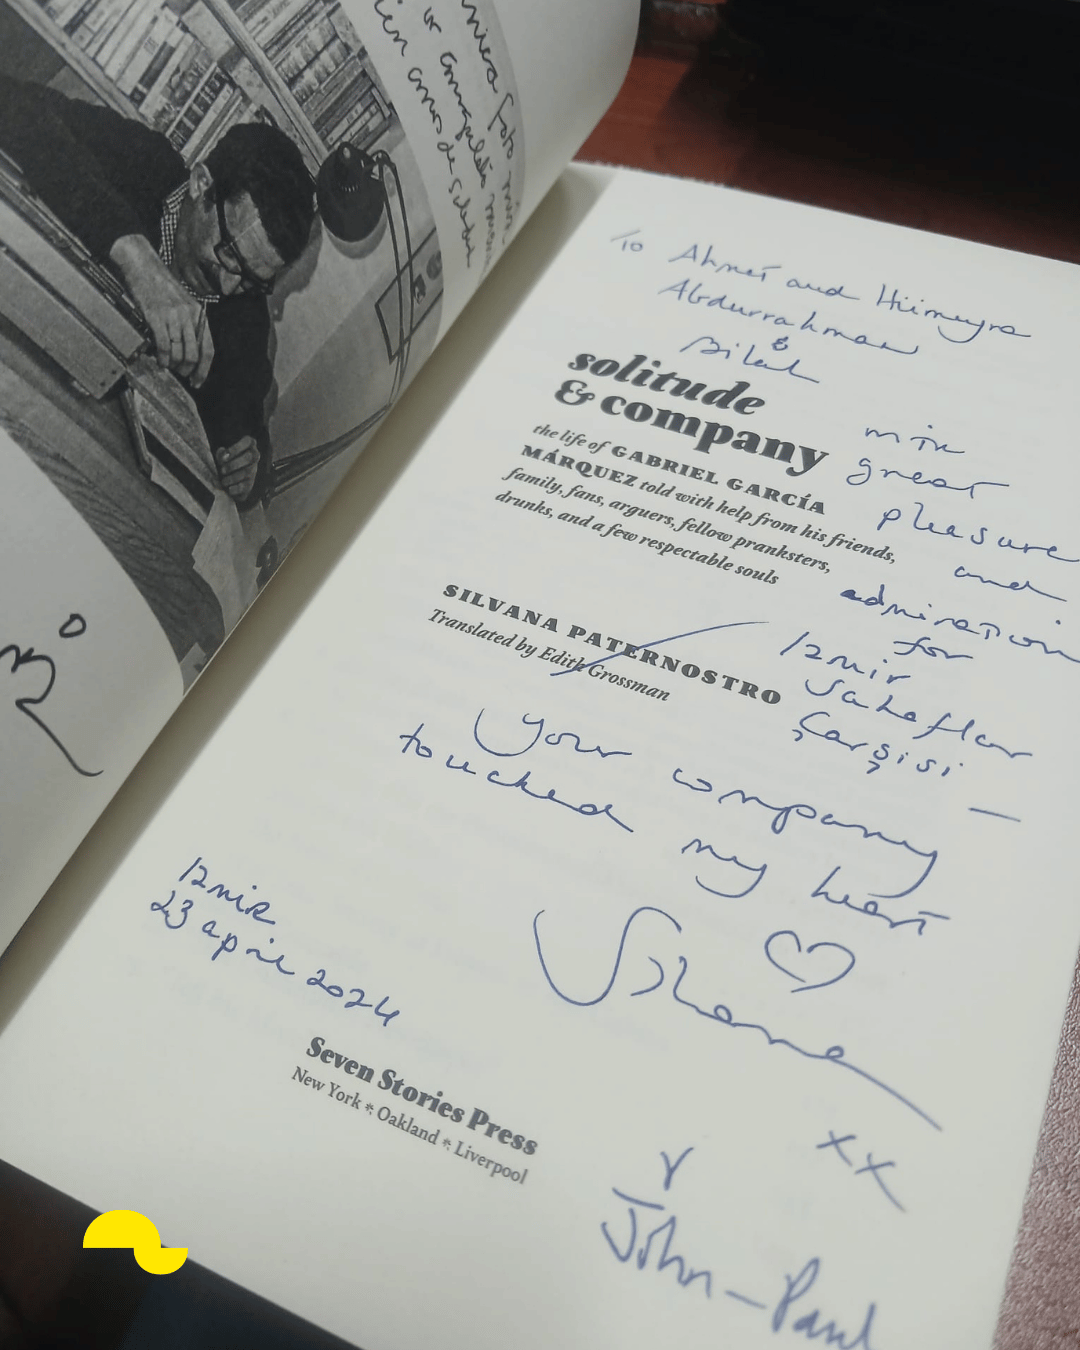 foto
To Ahmet and Hümeyra
Abdurrahman
&
Bilal
solitude
& company
the life of GABRIEL GARCÍA
MÁRQUEZ told with help from his friends,
family, fans, arguers, fellow pranksters,
drunks, and a few respectable souls
with
great
pleasure
and
admiration
for
Izmir
Sahaflar
Çarşisi —
SILVANA PATERNOSTRO
Translated by Edith Grossman
Your company
touched my heart
Izmir
23 april 2024
xx
Seven Stories Press
New York * Oakland * Liverpool
y
John-Paul